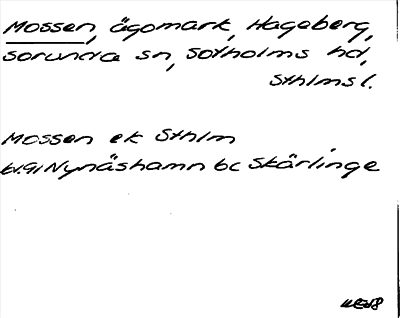 Mossen, ägomark, Hageberg,
Sorunda sn, Sotholms hd,
Sthlms l.
Mossen ek Sthlm
bl.91 Nynäshamn bc Skärlinge